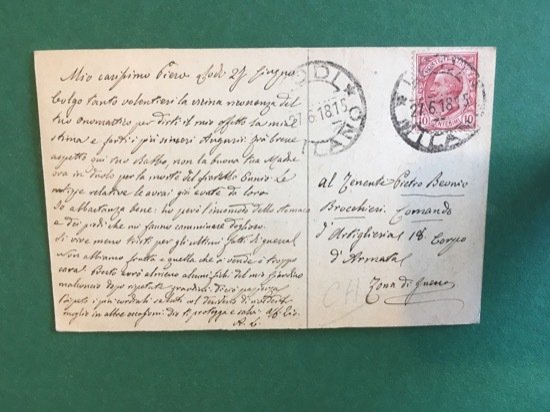 Mio carissimo Piero Lodi 27 Giugno
Colgo tanto volentieri la vicina ricorrenza del
tuo onomastico per dirti il mio affetto la mia
stima e farti i più sinceri Auguri. Fra breve
aspetto qui tuo Babbo non la buona tua Madre
ora in duolo per la morte del fratello
notizie relative le avrai già avute di loro
Io abbastanza bene: ho però l'incomodo dello stomaco
e dei piedi che mi fanno camminare
Si vive meno tristi per gli ultimi fatti di guerra
Non abbiamo frutta e quella che si vende è troppo
cara. avrò almeno alcuni fichi del mio giardino
malconcio dopo ripetute
i più cordiali e
meglio in altre occasioni. Dio ti protegga e
A. L.
LODI
MILANO
27.6.18.15
27.6.18.15
MILANO
10 10
Al Tenente Pietro Beonio
Brocchieri. Comando
d'Artiglieria 18 Corpo
d'Armata
Zona di Guerra